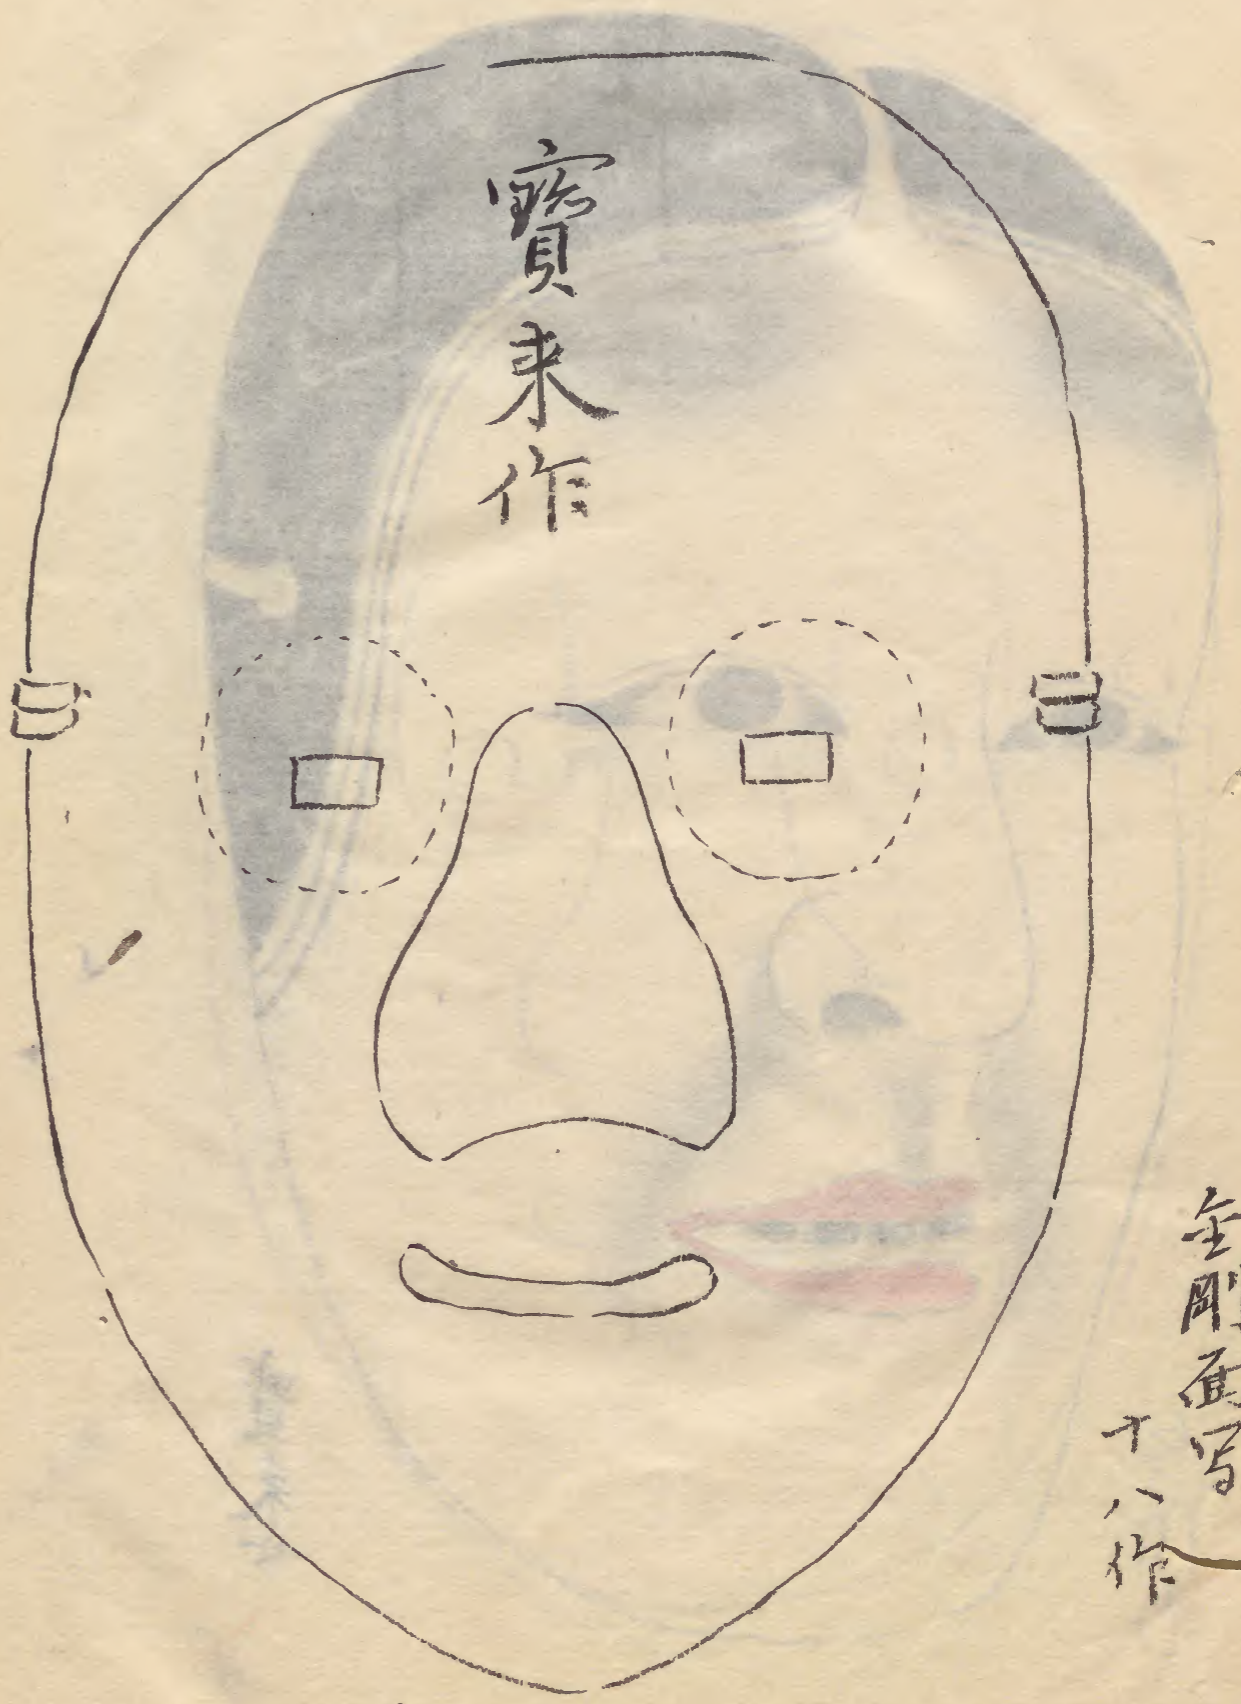 寳来作
金剛面写
十八作